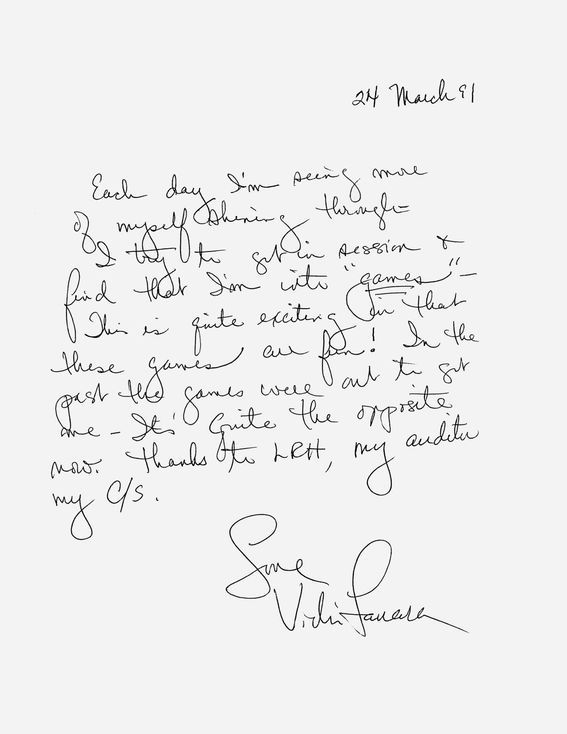 24 March 91
Each day I'm seeing more
of myself shining through–
I try to get in session &
find that I'm into "games"–
This is quite exciting in that
these games are fun! In the
past the games were out to get
me – It's quite the opposite
now. Thanks to LRH, my auditor
my C/S.
Love
Vicki